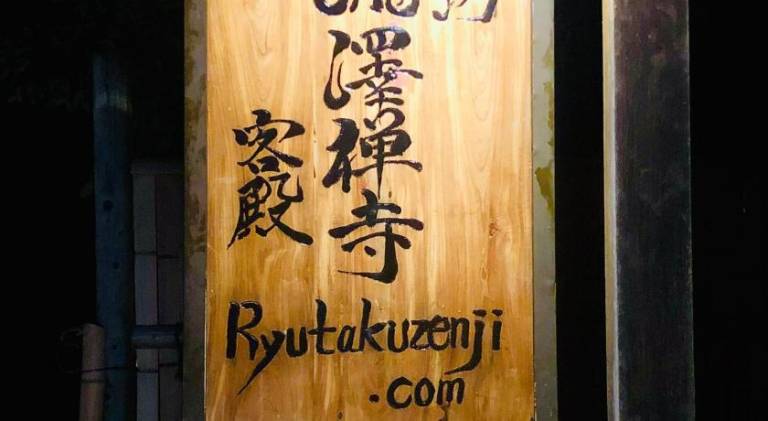 澤禅寺
客殿
Ryutakuzenji
.com